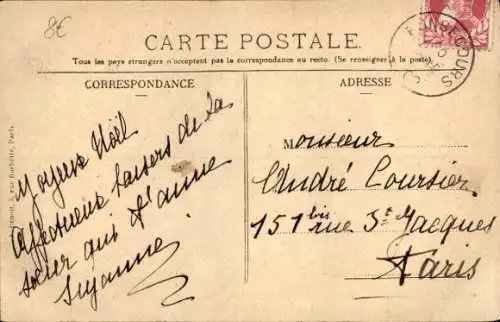 8€
CARTE POSTALE.
Tous les pays étrangers n'acceptent pas la correspondance au recto. (Se renseigner à la poste).
CORRESPONDANCE
ADRESSE
Joyeux Noël
Affectueux baisers de la
sœur qui t'aime
Suzanne
Monsieur
André Coursier
151 bis rue St Jacques
Paris
rue Barbette, Paris.